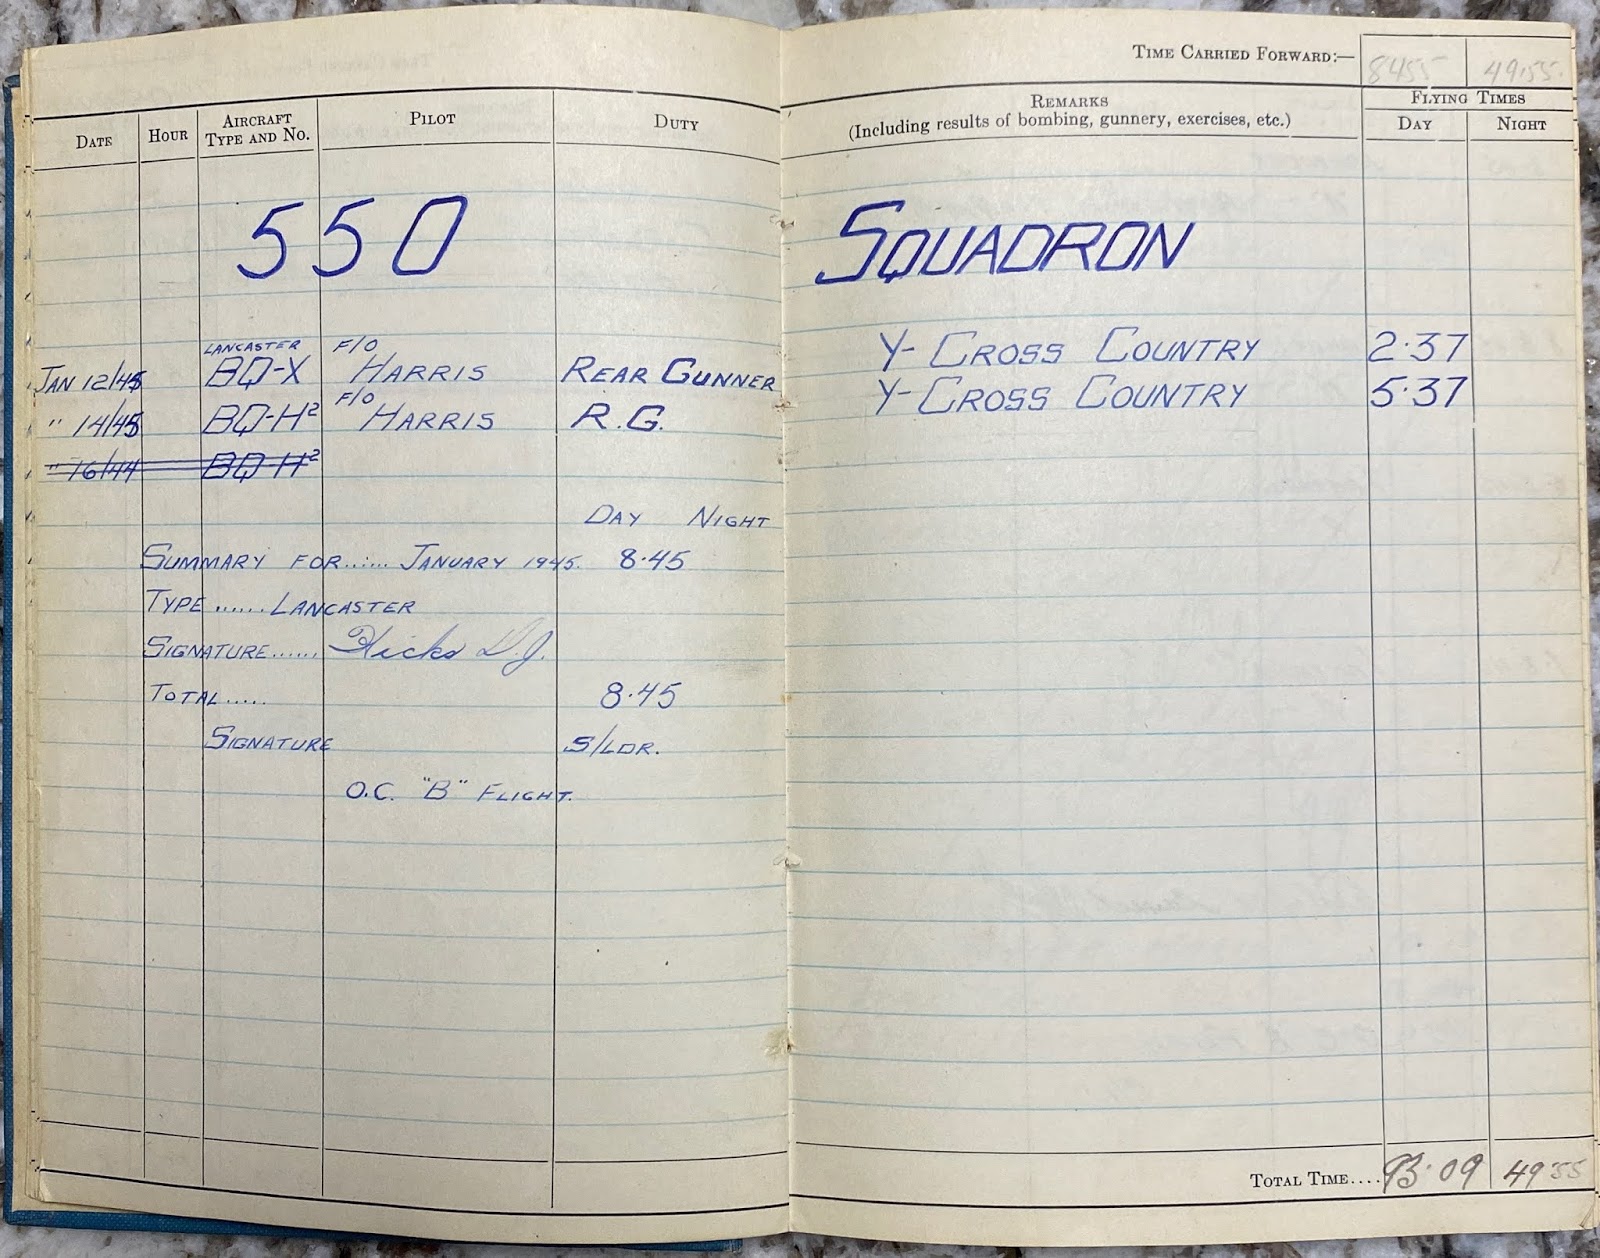 TIME CARRIED FORWARD:— 8455 49.55.
DATE HOUR AIRCRAFT TYPE AND NO. PILOT DUTY REMARKS (Including results of bombing, gunnery, exercises, etc.) FLYING TIMES DAY NIGHT
550 SQUADRON
LANCASTER F/O
JAN 12/45 BQ-X HARRIS REAR GUNNER Y-CROSS COUNTRY 2.37
F/O
" 14/45 BQ-H² HARRIS R.G. Y-CROSS COUNTRY 5.37
" 16/44 BQ-H²
DAY NIGHT
SUMMARY FOR...... JANUARY 1945. 8.45
TYPE ...... LANCASTER
SIGNATURE...... Hicks D.J.
TOTAL ..... 8.45
SIGNATURE S/LDR.
O.C. "B" FLIGHT.
TOTAL TIME.... 93.09 49 55